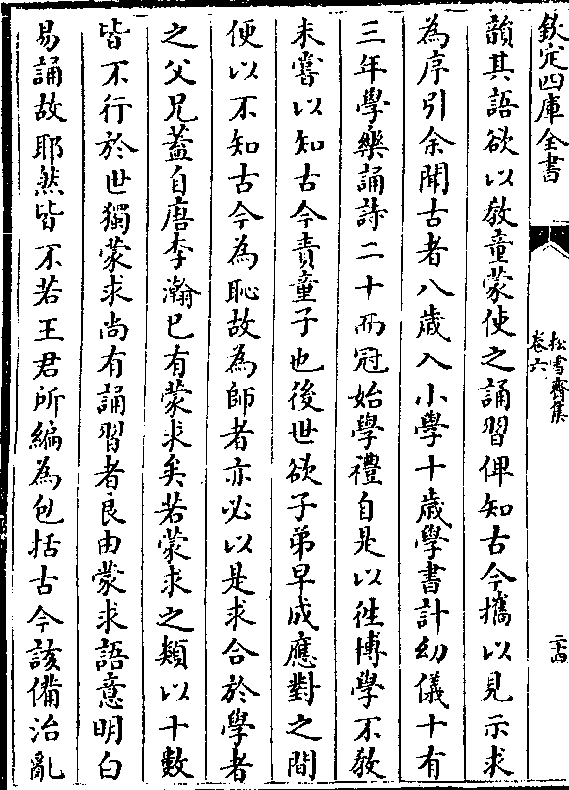 欽定四庫全書
松雪齋集
卷六
二十四
韻其語欲以教童蒙使之誦習俾知古今攜以見示求
為序引余聞古者八歲入小學十歲學書計幼儀十有
三年學樂誦詩二十而冠始學禮自是以徃博學不教
未嘗以知古今責童子也後世欲子弟早成應對之間
便以不知古今為恥故為師者亦必以是求合於學者
之父兄蓋自唐李瀚已有蒙求矣若蒙求之類以十數
皆不行於世獨蒙求尚有誦習者良由蒙求語意明白
易誦故耶然皆不若王君所編為包括古今該備治亂